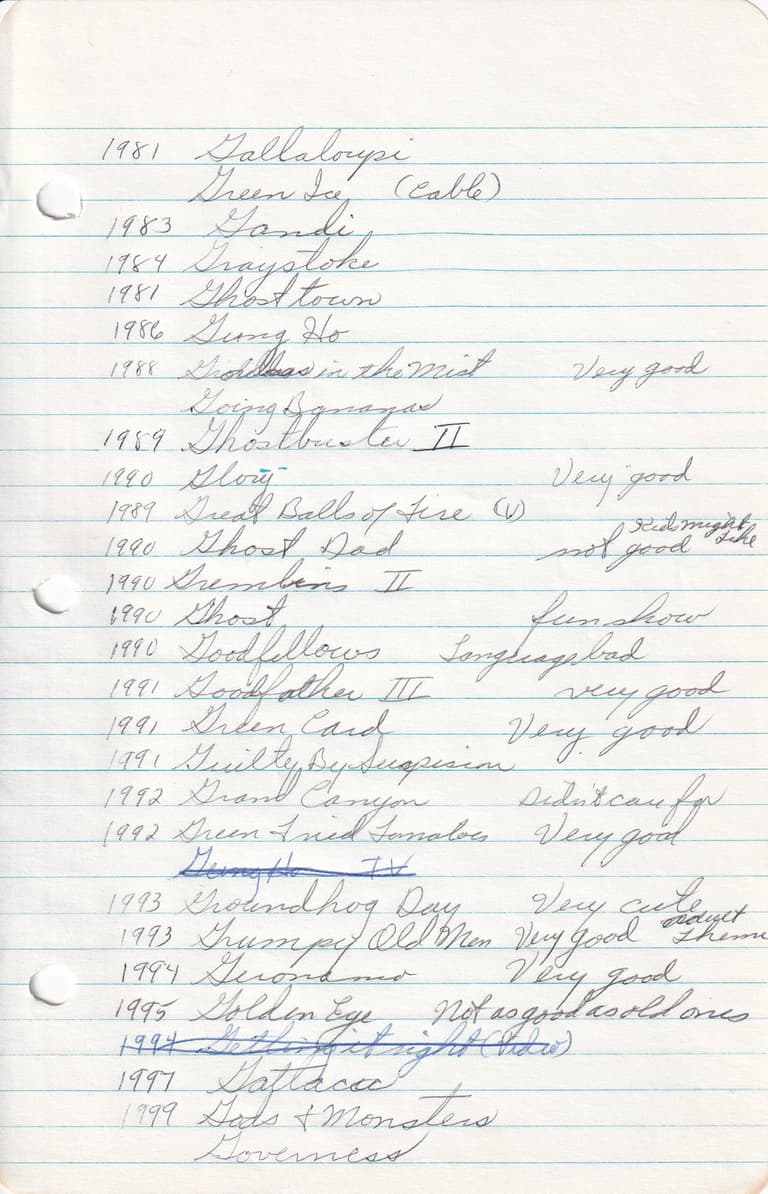 1981 Gallaloupi
Green Ice (cable)
1983 Gandi
1984 Graystoke
1981 Ghost town
1986 Gung Ho
1988 in the Mist Very good
Going Bananas
1989 Ghostbuster II
1990 Glory Very good
1989 Great Balls of Fire (V)
1990 Ghost Dad not good Kids might like
1990 Gremlins II
1990 Ghost fun show
1990 Goodfellows Language bad
1991 Goodfather III very good
1991 Green Card Very good
1991 Guilty By Suspision
1992 Grand Canyon Didn't care for
1992 Green Fried Tomatoes Very good
Gung Ho TV
1993 Groundhog Day Very cute
1993 Grumpy Old Men Very Good adult theme
1994 Geronamo Very good
1995 Golden Eye Not as good as old ones
1994 Getting it right (Video)
1997 Gattaca
1999 Gods & Monsters
Governess